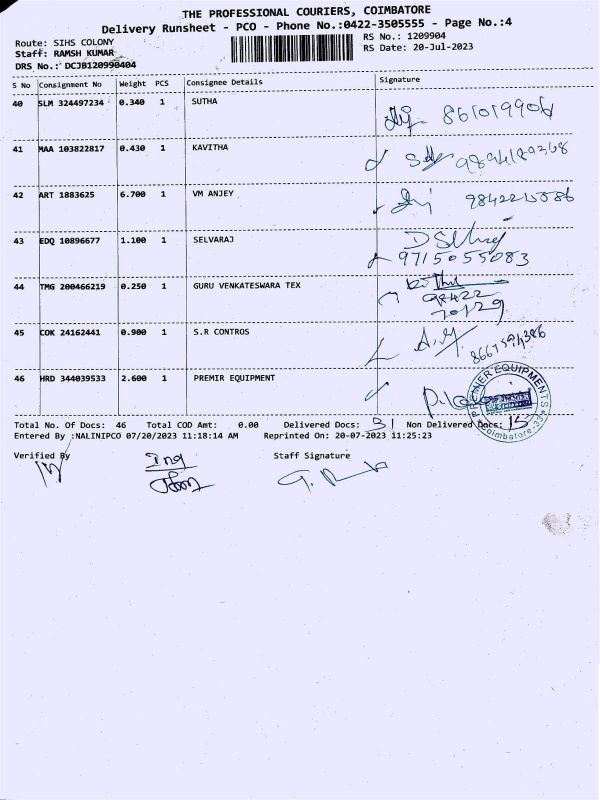 THE PROFESSIONAL COURIERS, COIMBATORE
Delivery Runsheet - PCO - Phone No.:0422-3505555 - Page No.:4
Route: SIHS COLONY
RS No.: 1209904
Staff: RAMSH KUMAR
RS Date: 20-Jul-2023
DRS No.: DCJB120990404
S No Consignment No Weight PCS Consignee Details Signature
40 SLM 324497234 0.340 1 SUTHA
41 MAA 103822817 0.430 1 KAVITHA
42 ART 1883625 6.700 1 VM ANJEY
43 EDQ 10896677 1.100 1 SELVARAJ
9715055083
44 TMG 200466219 0.250 1 GURU VENKATESWARA TEX
98422
70129
45 CDK 24162441 0.900 1 S.R CONTROS
46 HRD 344039533 2.600 1 PREMIR EQUIPMENT
PREMIER EQUIPMENTS
Coimbatore-33
Total No. Of Docs: 46 Total COD Amt: 0.00 Delivered Docs: 31 Non Delivered Docs: 15
Entered By :NALINIPCO 07/20/2023 11:18:14 AM Reprinted On: 20-07-2023 11:25:23
Verified By Staff Signature